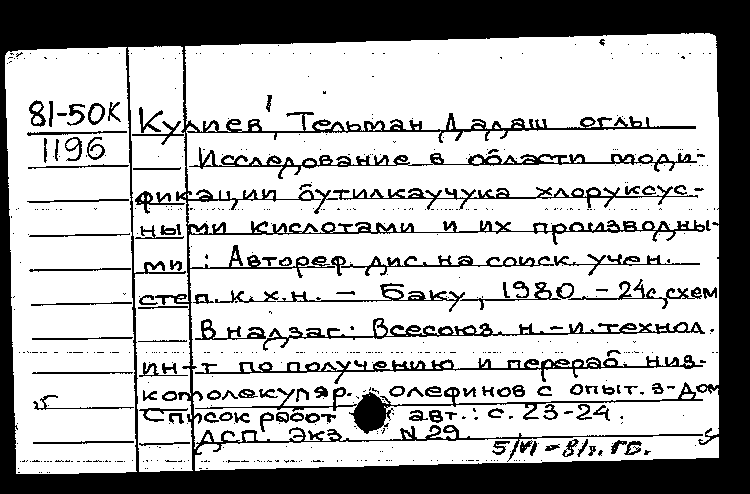 81-50К
1196
Кулиев, Тельман Дадаш оглы
Исследование в области моди-
фикации бутилкаучука хлоруксус-
ными кислотами и их производны-
ми : Автореф. дис. на соиск. учен.
степ. к.х.н. - Баку, 1980. - 24с, схем
В надзаг.: Всесоюз. н.-и. технол.
ин-т по получению и перераб. низ-
комолекуляр. олефинов с опыт. з-дом
Список работ авт.: с. 23-24.
ДСП. Экз. N 29.